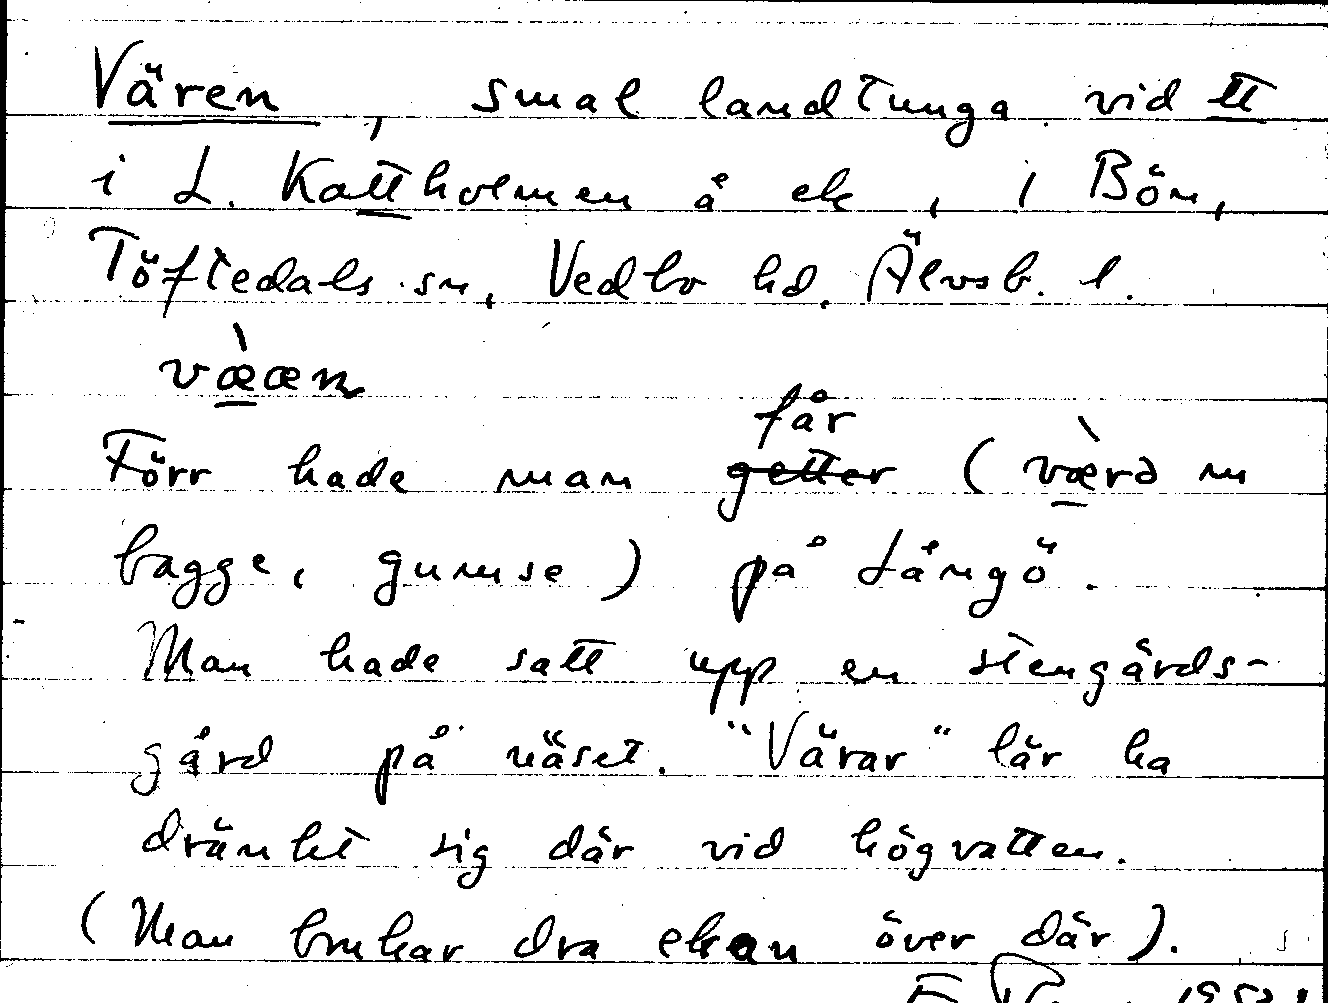 Vären, smal landtunga vid tt
i L. Kattholmen å ek, i Bön,
Töftedals sn, Vedbo hd. Älvsb. l.
væ̀æn
får
Förr hade man getter (væ̀rə m
bagge, gumse) på Långö.
Man hade satt upp en stengårds-
gård på näset. "Värar" lär ha
dränkt sig där vid högvatten.
(Man brukar dra ekan över där).